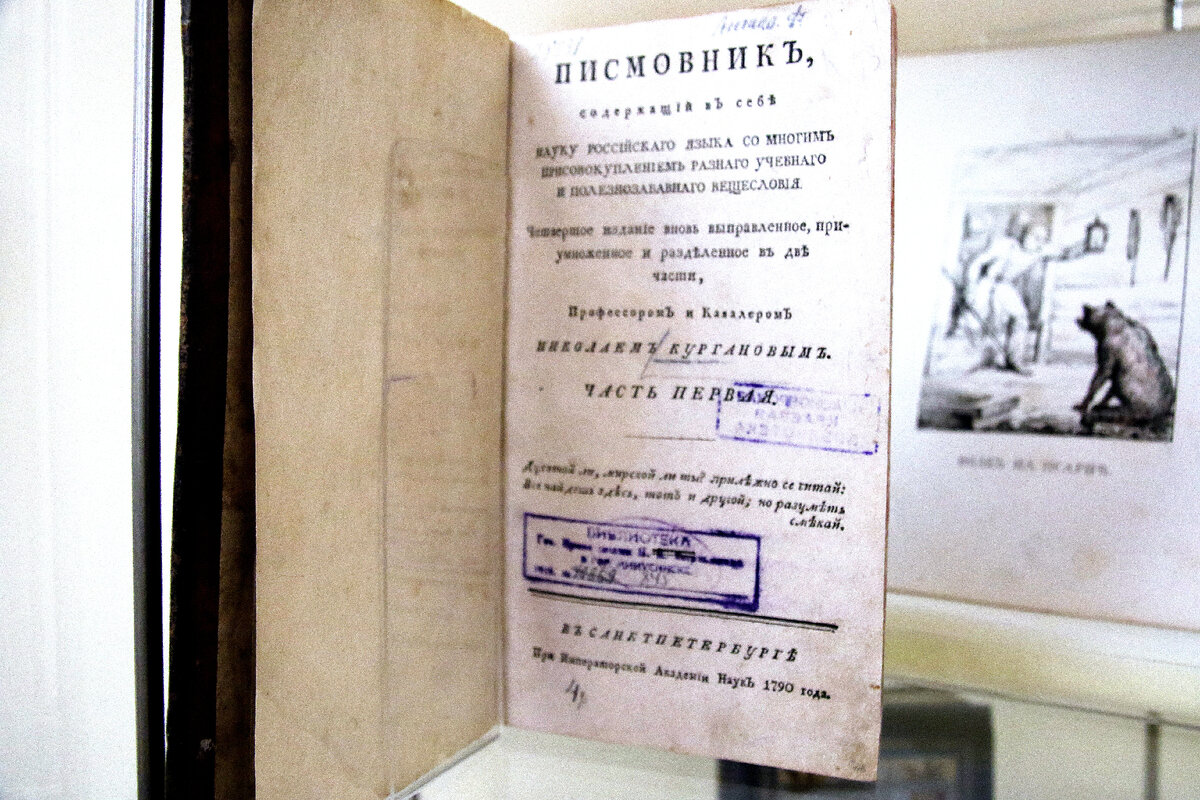 ПИСМОВНИКЪ,
содержащій въ себѣ
НАУКУ РОССІЙСКАГО ЯЗЫКА СО МНОГИМЪ
ПРИСОВОКУПЛЕНІЕМЪ РАЗНАГО УЧЕБНАГО
И ПОЛЕЗНОЗАБАВНАГО ВЕЩЕСЛОВІЯ.
Четвертое изданіе вновь выправленное, при-
умноженное и раздѣленное въ двѣ
части,
Профессоромъ и Кавалеромъ
НИКОЛАЕМЪ КУРГАНОВЫМЪ.
ЧАСТЬ ПЕРВАЯ.
Духовной ли, мирской ли ты? прилѣжно се читай:
Все найдешь здѣсь, тотъ и другой; но разумѣть
смѣкай.
БИБЛИОТЕКА
ВЪ САНКТПЕТЕРБУРГѢ
При Императорской Академіи Наукъ 1790 года.
ВОЛКЪ НА ПСАРНѢ.